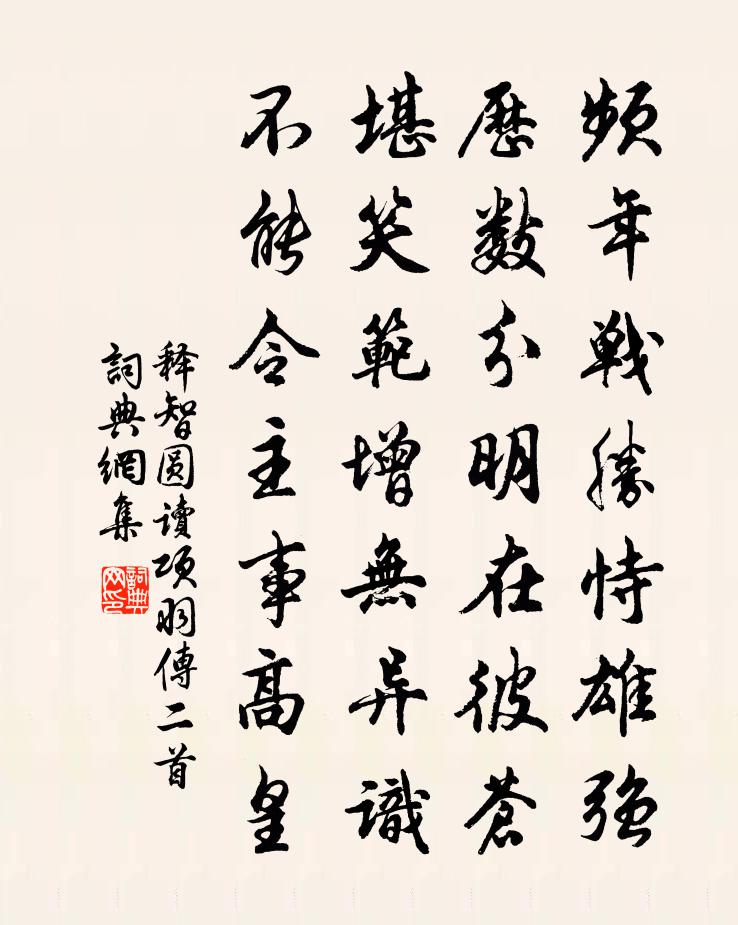 頻年戰勝恃雄强
歷數分明在彼蒼
堪笑範增無异識
不能令主事高皇
释智圆讀項羽傳二首
詞典網集
詞典网印